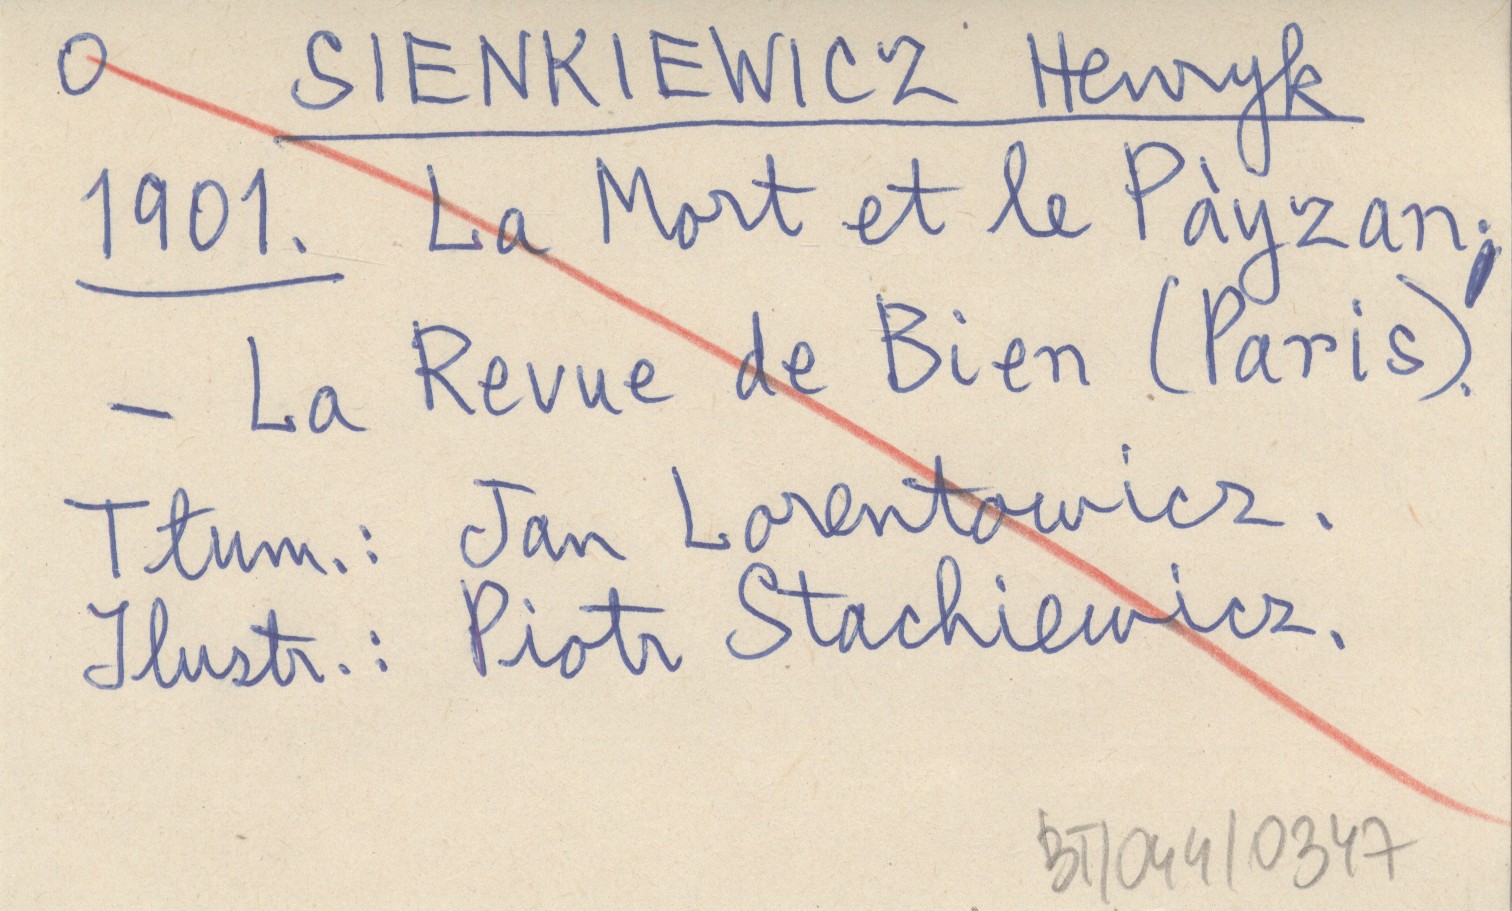 O SIENKIEWICZ Henryk
1901. La Mort et le Pàyzan;
- La Revue de Bien (Paris).
Tłum.: Jan Lorentowicz.
Ilustr.: Piotr Stachiewicz.
BT/044/0347